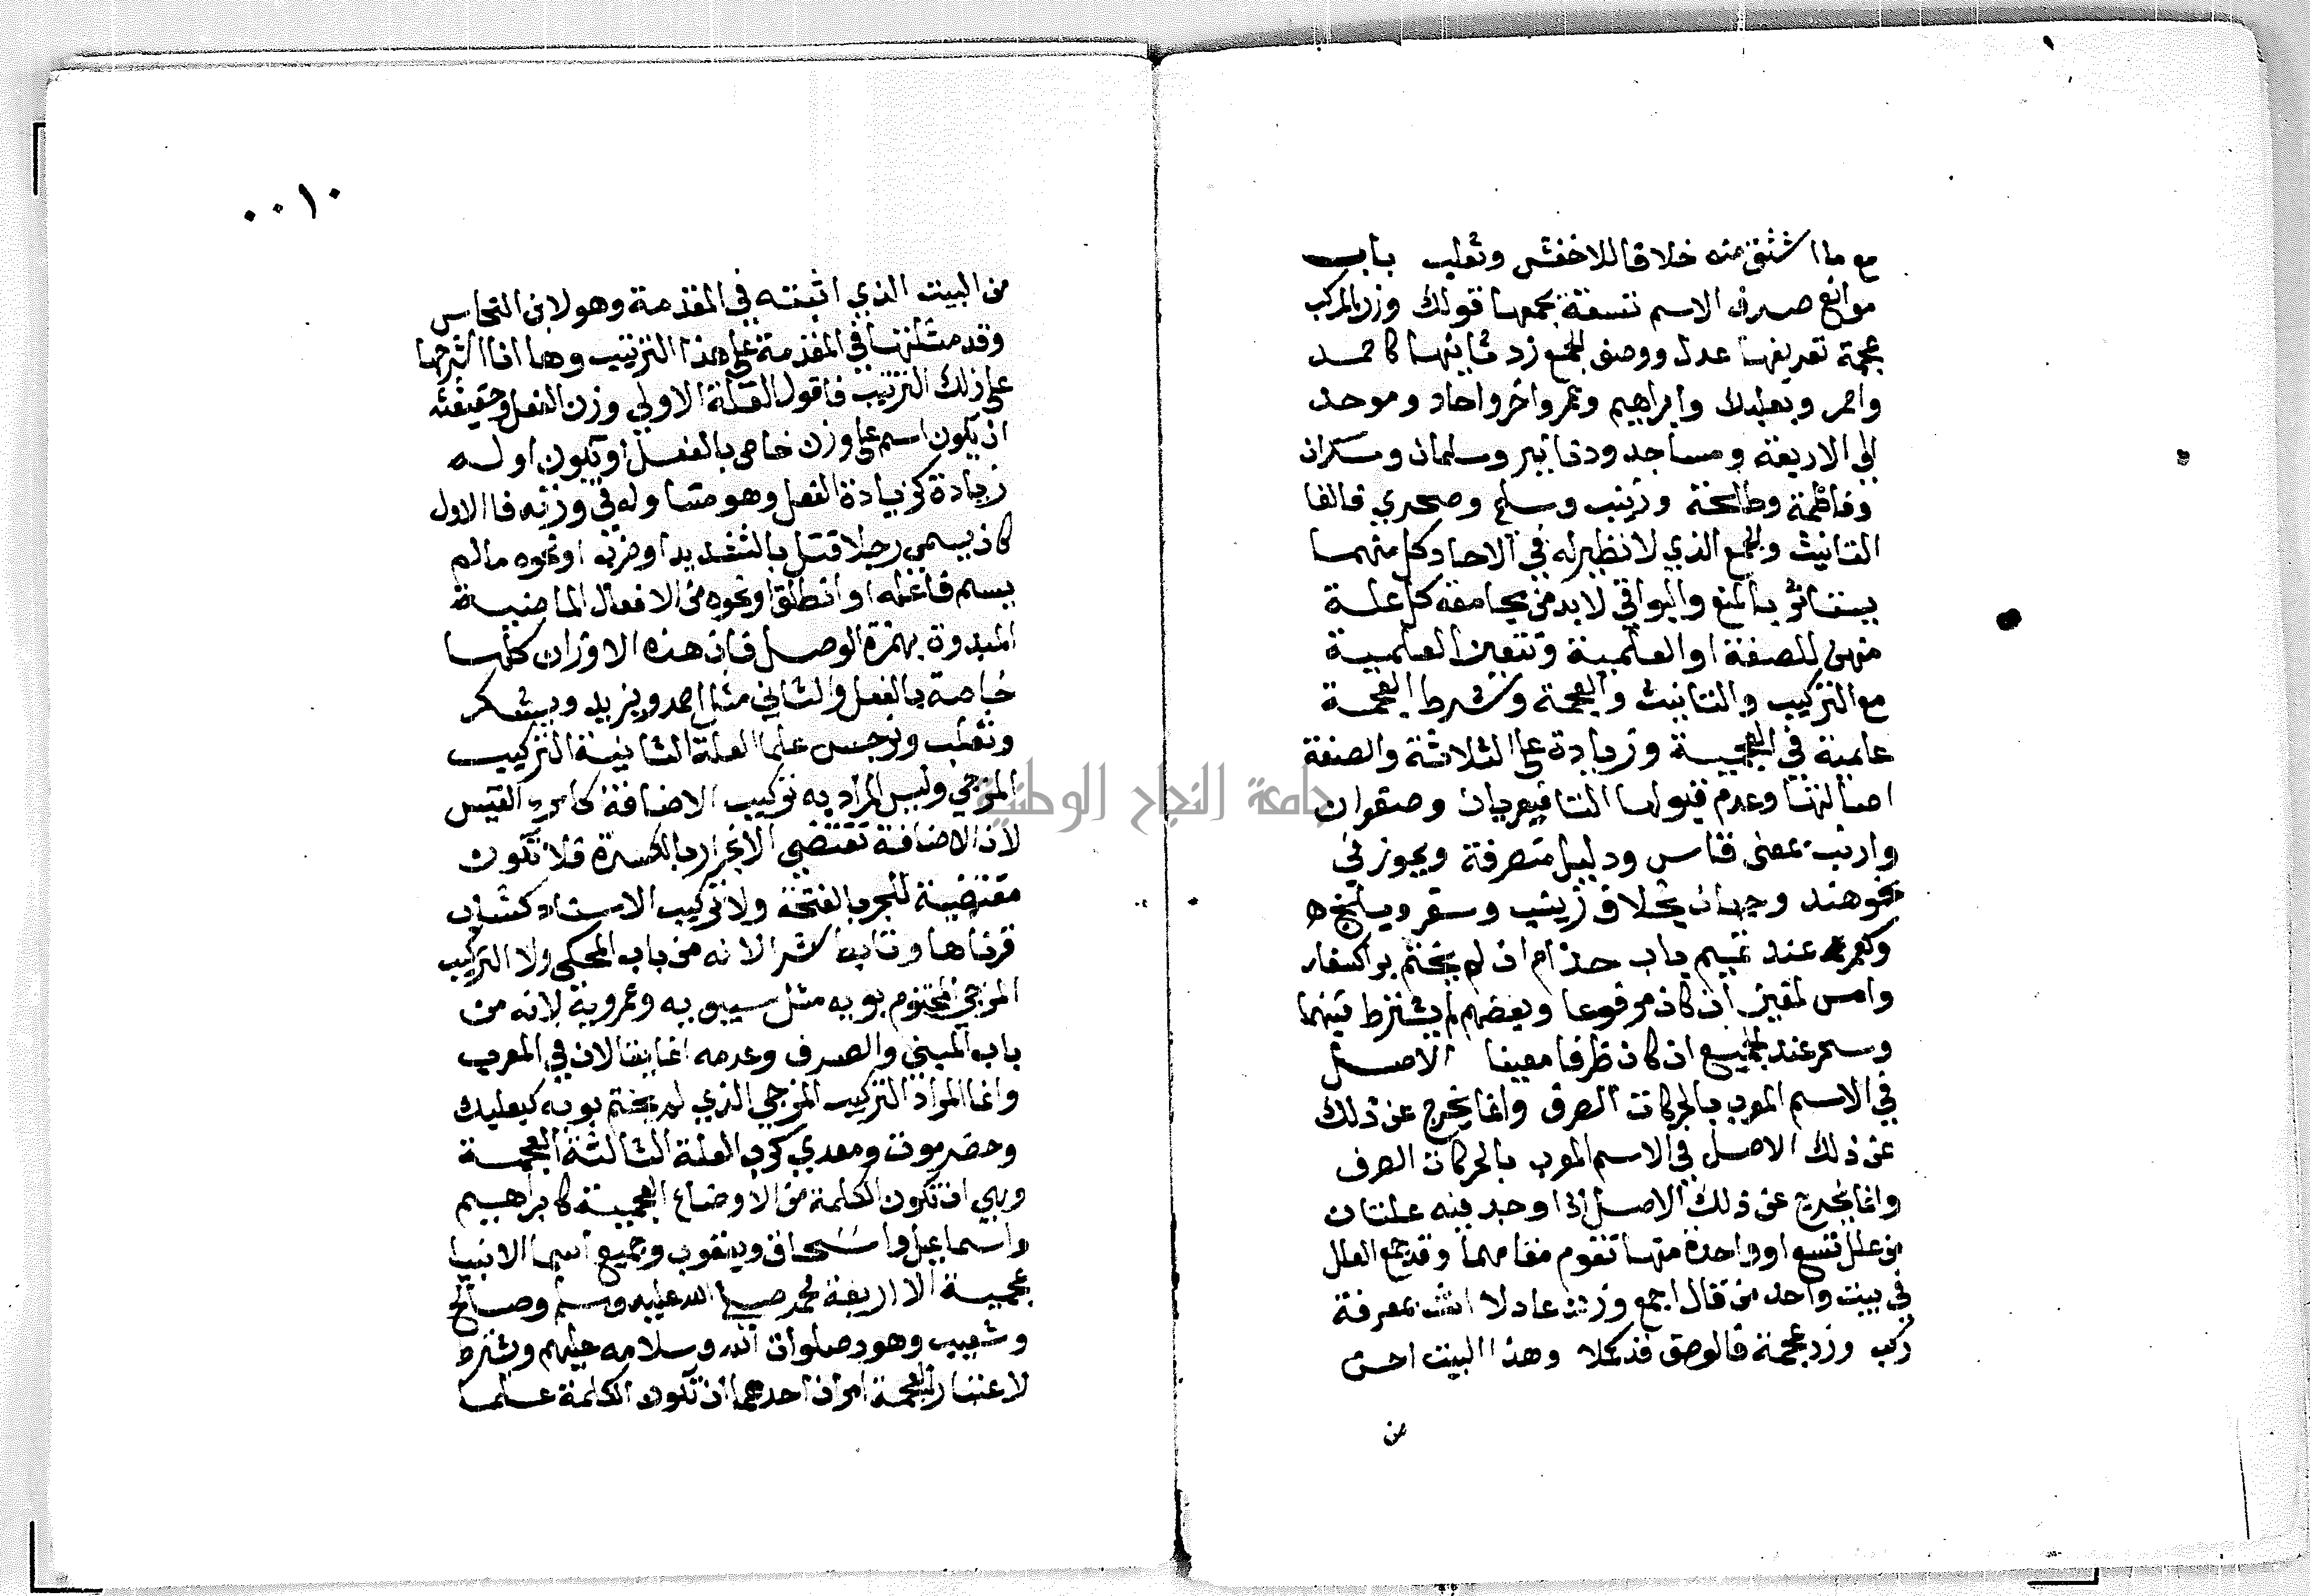 مع ما اشتق منه خلافا للاخفش وثعلب باب
موانع صرف الاسم تسعة يجمعها قولك وزن المركب
عجمة تعريفها عدل ووصف الجمع زد تانيثها كاحمد
واحمر وبعلبك وابراهيم وعمر واخر واحاد وموحد
الي الاربعة ومساجد ودنانير وسلمان وسكران
وفاطمة وطلحة وزينب وسلمي وصحري فالفا
التانيث والجمع الذي لا نظير له في الاحاد كل منهما
يستاثر بالمنع والبواقي لابد من مجامعة كل علة
منهن للصفة او العلمية وتتعين العلمية
مع التركيب والتانيث والعجمة وشرط العجمة
علمية في العجمية وزيادة علي الثلاثة والصفة
اصالتها وعدم قبولها التا فعريان وصفوان
وارنب بمعني قاس ودليل متصرفة ويجوز في
نحو هند وجهان بخلاف زينب وسقر وبلخ
وكعمر عند تميم باب حذام ان لم يختم برا كسفار
وامس لمعين ان كان مرفوعا وبعضهم لم يشترط فيهما
وسحر عند الجميع ان كان ظرفا معينا الاصل
في الاسم المعرب بالحركات الصرف وانما يخرج عن ذلك
عن ذلك الاصل في الاسم المعرب بالحركات الصرف
وانما يخرج عن ذلك الاصل اذا وجد فيه علتان
من علل تسع او واحدة منها تقوم مقامهما وقد جمع العلل
في بيت واحد من قال اجمع وزن عادلا انث بمعرفة
ركب وزد عجمة فالوصف قد كملا وهذا البيت احسن
من
٠٠١٠
من البيت الذي اثبته في المقدمة وهو لابن النحاس
وقد مثلتها في المقدمة علي هذا الترتيب وها انا اشرحها
علي ذلك الترتيب فاقول العلة الاولي وزن الفعل وحقيقته
ان يكون اسم علي وزن خاص بالفعل او يكون اوله
زيادة كزيادة الفعل وهو مساو له في وزنه فا الاول
كان يسمي رجلا قتل بالتشديد او ضرب او نحوه مالم
يسم فاعله او انطلق او نحوه من الافعال الماضية
المبدوة بهمزة الوصل فان هذه الاوزان كلها
خاصة بالفعل والثاني مثل احمد ويزيد ويشكر
وتغلب ونرجس علما العلة الثانية التركيب
المزجي وليس المراد به تركيب الاضافة كامري القيس
لان الاضافة تقتضي الانجرار بالكسرة فلا تكون
مقتضية للجر بالفتحة ولا تركيب الاسناد كشاب
قرناها وتابط شرا لانه من باب المحكي ولا التركيب
المزجي المختوم بويه مثل سيبويه وعمرويه لانه من
باب المبني والصرف وعدمه انما يقالان في المعرب
وانما المراد التركيب المزجي الذي لم يختم بويه كبعلبك
وحضرموت ومعدي كرب العلة الثالثة العجمة
وهي ان تكون الكلمة من الاوضاع العجمية كابراهيم
واسماعيل واسحاق ويعقوب وجميع اسما الانبيا
عجمية الا اربعة محمد صلي الله عليه وسلم وصالح
وشعيب وهود صلوات الله وسلامه عليهم ويشترط
لاعتبار العجمة امران احدهما ان تكون الكلمة علما
جامعة النجاح الوطنية